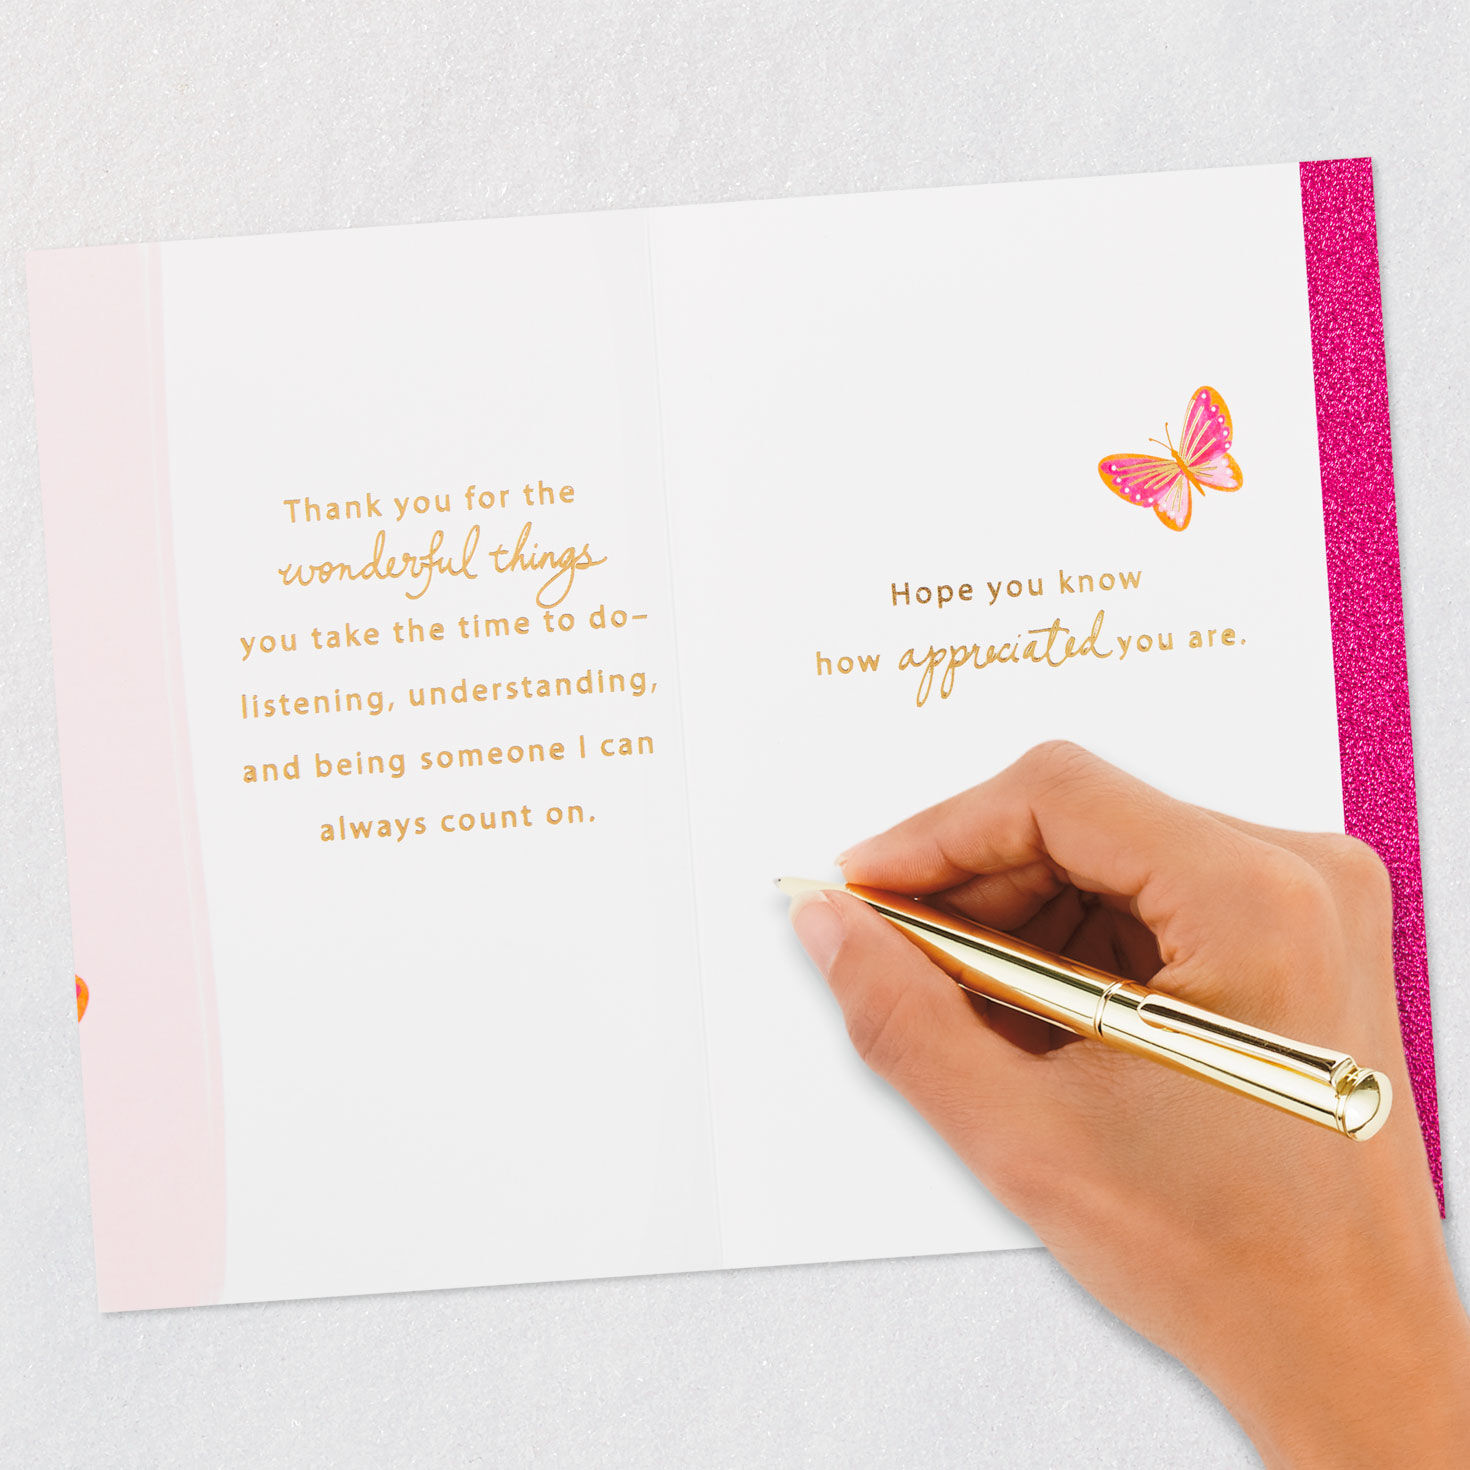 Thank you for the
wonderful things
you take the time to do–
listening, understanding,
and being someone I can
always count on.
Hope you know
how appreciated you are.